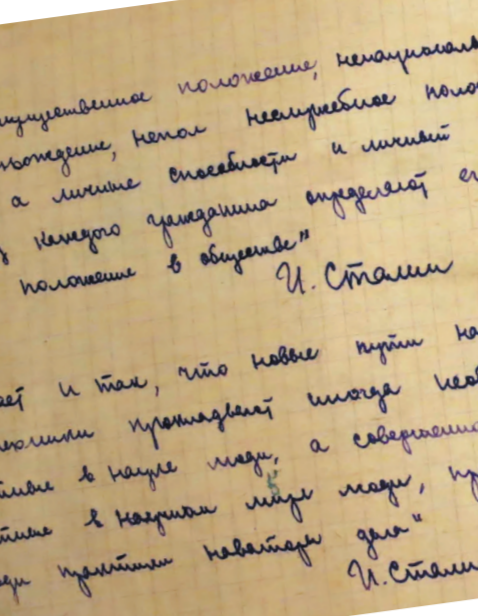 мущественное положение, ненациональ
схождение, непол неслужебное поло
а личные способности и личный
каждого гражданина определяют ег
положение в обществе"
И. Сталин
ает и так, что новые пути на
техники прокладвают иногда неов
тные в науке люди, а совершенно
тные в научном мире люди, пр
юди практики новаторы дела"
И. Стали